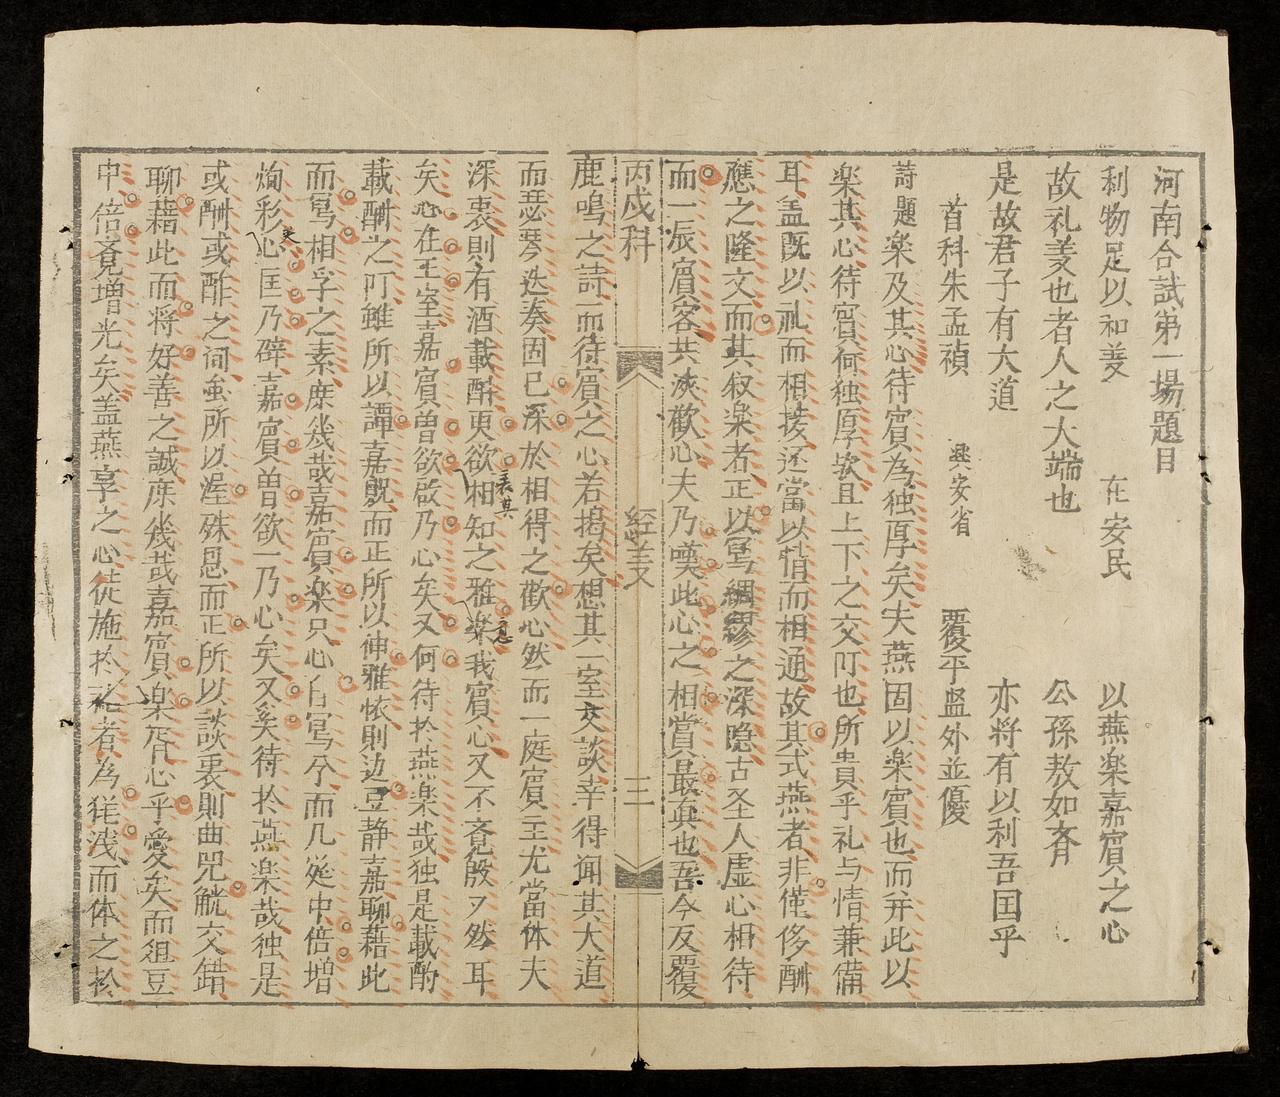 河南合試第一場題目
利物足以和義　在安民　以燕楽嘉賓之心
故礼義也者人之大端也　公孫敖如斉
是故君子有大道　亦将有以利吾国乎
首科朱孟禎　興安省　覆平監外並優
詩題楽及其心待賓為独厚矣夫燕固以楽賓也而并此以
楽其心待賓何独厚欤且上下之交際也所貴乎礼与情兼備
耳盖既以礼而相接还當以情而相通故其式燕者非僅侈酬
應之隆文而其叙楽者正以寫綢繆之深隐古圣人虚心相待
而一辰賓客共浹歡心夫乃嘆此心之相賞最真也吾今反覆
丙戌科　經義　二
鹿鳴之詩而待賓之心若揭矣想其一室交談幸得闻其大道
而瑟琴迭奏固已深於相得之歡心然而一庭賓主尤當体夫
深衷則有酒載酬更欲相知之雅楽我賓心又不覚殷々然耳
表其
意
矣心在王室嘉賓曽欲啟乃心矣又何待於燕楽哉独是載酌
載酬之际雖所以譚嘉貺而正所以伸雅懷則边豆静嘉聊藉此
而寫相孚之素庶幾哉嘉賓楽只心自寫兮而几筵中倍增
煥彩心匡乃辟嘉賓曽欲一乃心矣又奚待於燕楽哉独是
或酬或酢之间虽所以渥殊恩而正所以談衷則曲兕觥交錯
聊藉此而将好善之誠庶幾哉嘉賓楽胥心乎愛矣而俎豆
中倍覚增光矣盖燕享之心徒施於礼者為犹浅而体之於